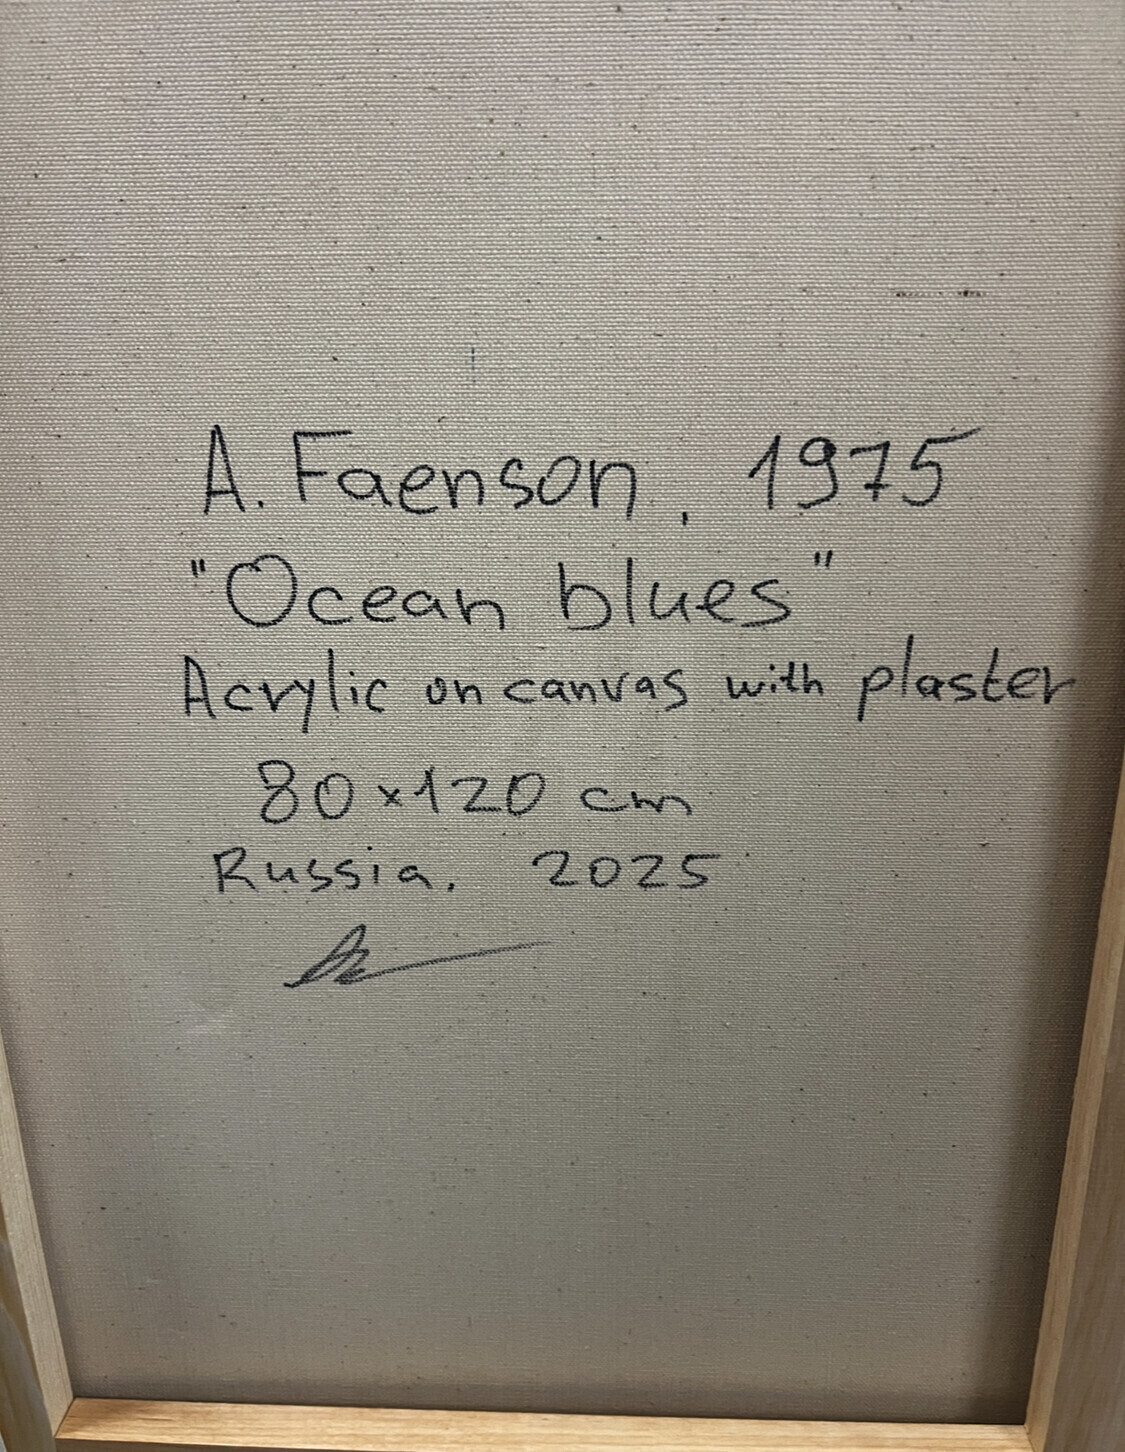 A. Faenson, 1975
"Ocean blues"
Acrylic on canvas with plaster
80×120 cm
Russia. 2025